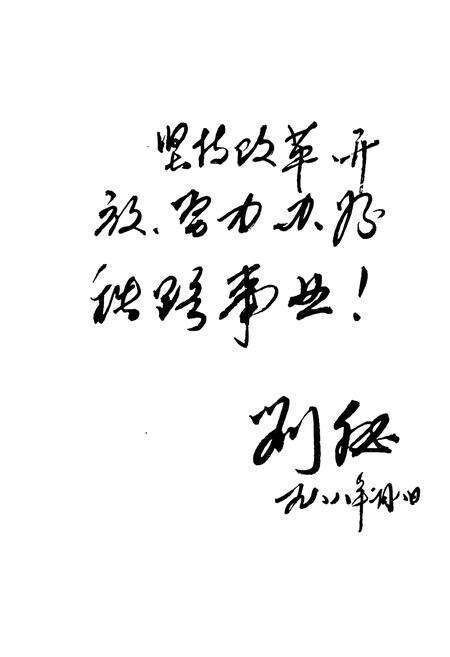 坚持改革、开
放、努力办好
铁路事业！
刘秘
一九八八年二月八日